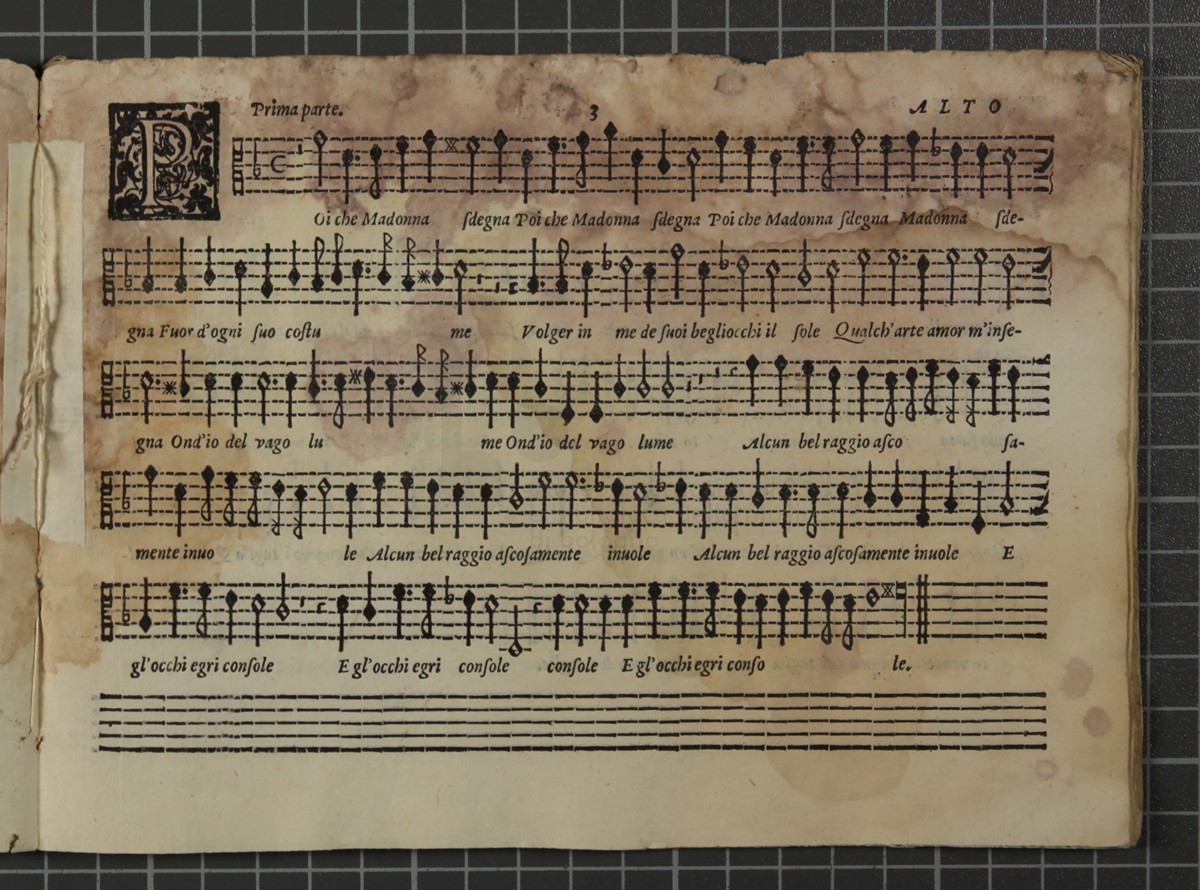 Prima parte. 3 ALTO
POi che Madonna ſdegna Poi che Madonna ſdegna Poi che Madonna ſdegna Madonna ſde-
gna Fuor d'ogni ſuo coſtu me Volger in me de ſuoi begliocchi il ſole Qualch'arte amor m'inſe-
gna Ond'io del vago lu me Ond'io del vago lume Alcun bel raggio aſco ſa-
mente inuo le Alcun bel raggio aſcoſamente inuole Alcun bel raggio aſcoſamente inuole E
gl'occhi egri conſole E gl'occhi egri conſole conſole E gl'occhi egri conſo le.